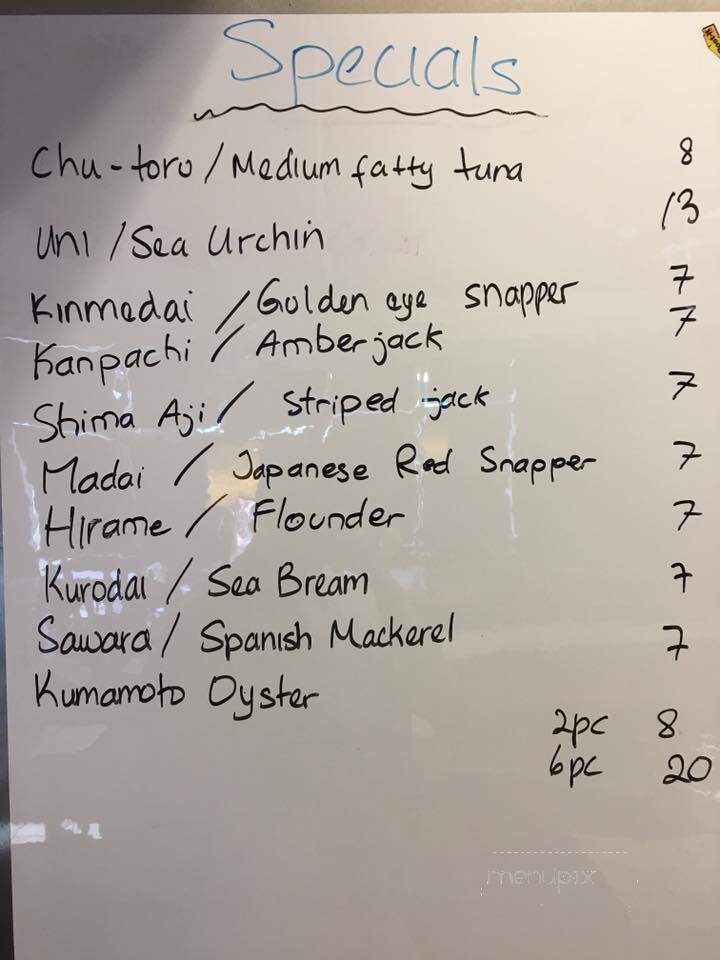 Specials
Chu-toro / Medium fatty tuna 8
Uni / Sea Urchin 13
Kinmedai / Golden eye snapper 7
Kanpachi / Amberjack 7
Shima Aji / striped jack 7
Madai / Japanese Red Snapper 7
Hirame / Flounder 7
Kurodai / Sea Bream 7
Sawara / Spanish Mackerel 7
Kumamoto Oyster
2pc 8
6pc 20
menupix